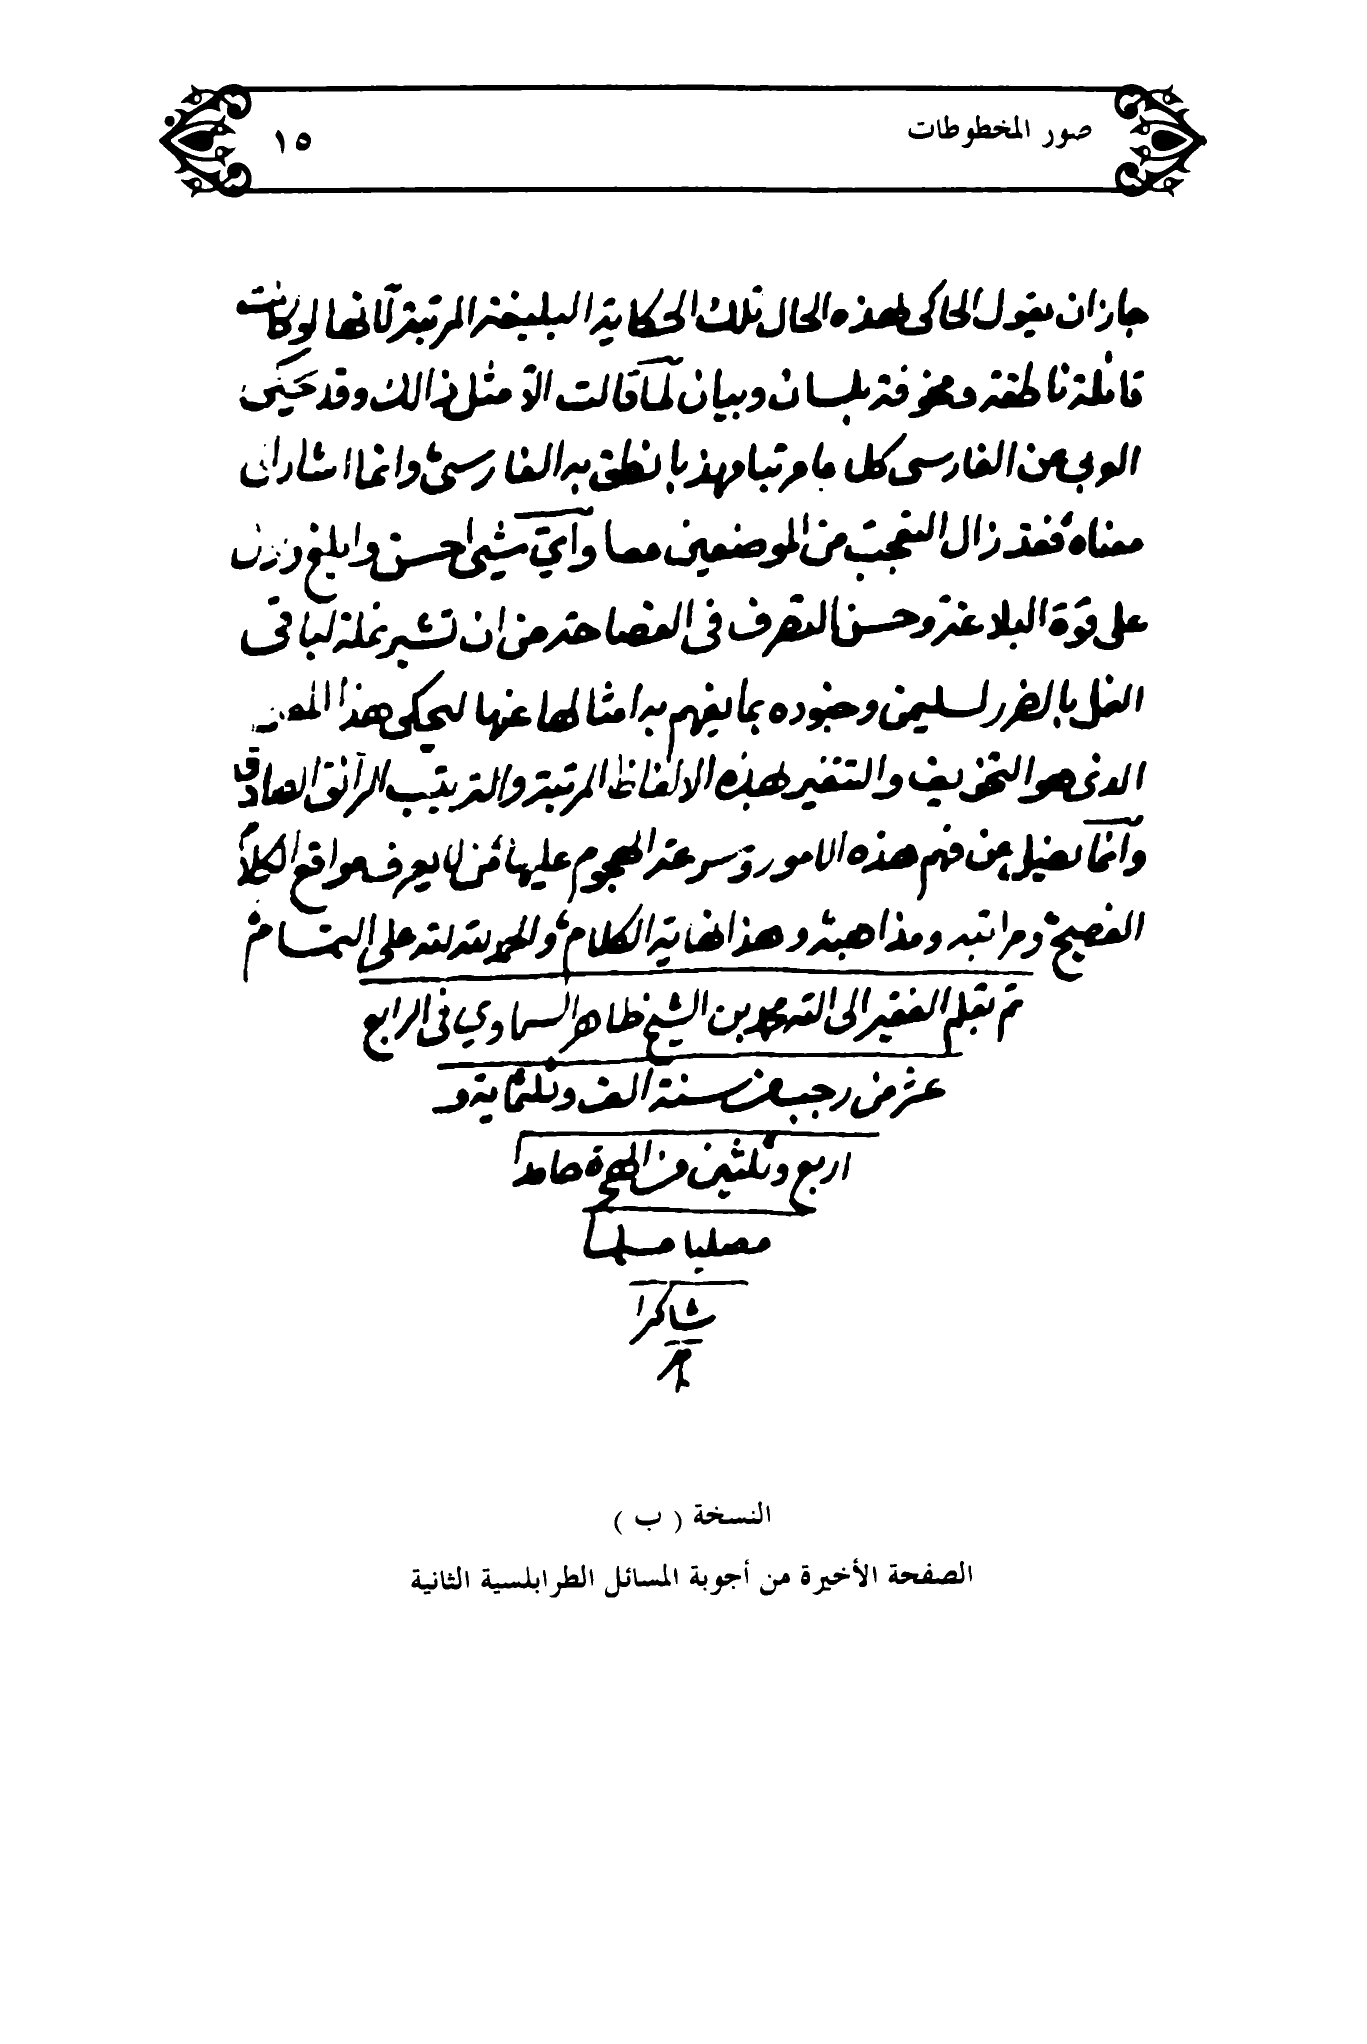 صور المخطوطات
١٥
جاز ان يقول الحاكى لهذه الحال تلك الحكاية البليغة المرتبة لانها لو كانت
قائلة ناطقة ومخوفة بلسان وبيان لما قالت الا مثل ذالك وقد
العربى عن الفارسى كل ما مرتبا مهذبا نطق به الفارسى وانما اشار الى
معناه فقد زال التعجب من الموضعين معا واى شيئ احسن وابلغ
على قوة البلاغة وحسن التصرف فى الفصاحة من ان تشير نملة لباقى
النمل بالضرر لسليمن وجنوده بما يفهم به امثالها عنها ليحكى هذا المعنى
الذى هو التخويف والتنفير بهذه الالفاظ المرتبة والترتيب الرائق الصادق
وانما يضل عن فهم هذه الامور وسرعة الهجوم عليها من لا يعرف مواقع الكلام
الفصيح ومراتبه ومذاهبه وهذا نهاية الكلام والحمد لله على التمام
تم بقلم الفقير الى الله محمد بن الشيخ طاهر السماوي فى الرابع
عشر من رجب من سنة الف وثلثماية و
اربع وثلثين من الهجرة حامدا
مصليا مسلما
شاكرا
النسخة ( ب )
الصفحة الأخيرة من أجوبة المسائل الطرابلسية الثانية